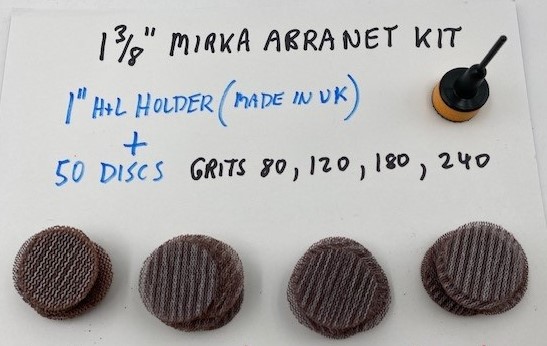 1 3/8" MIRKA ABRANET KIT
1" H+L HOLDER (MADE IN UK)
+
50 DISCS GRITS 80, 120, 180, 240